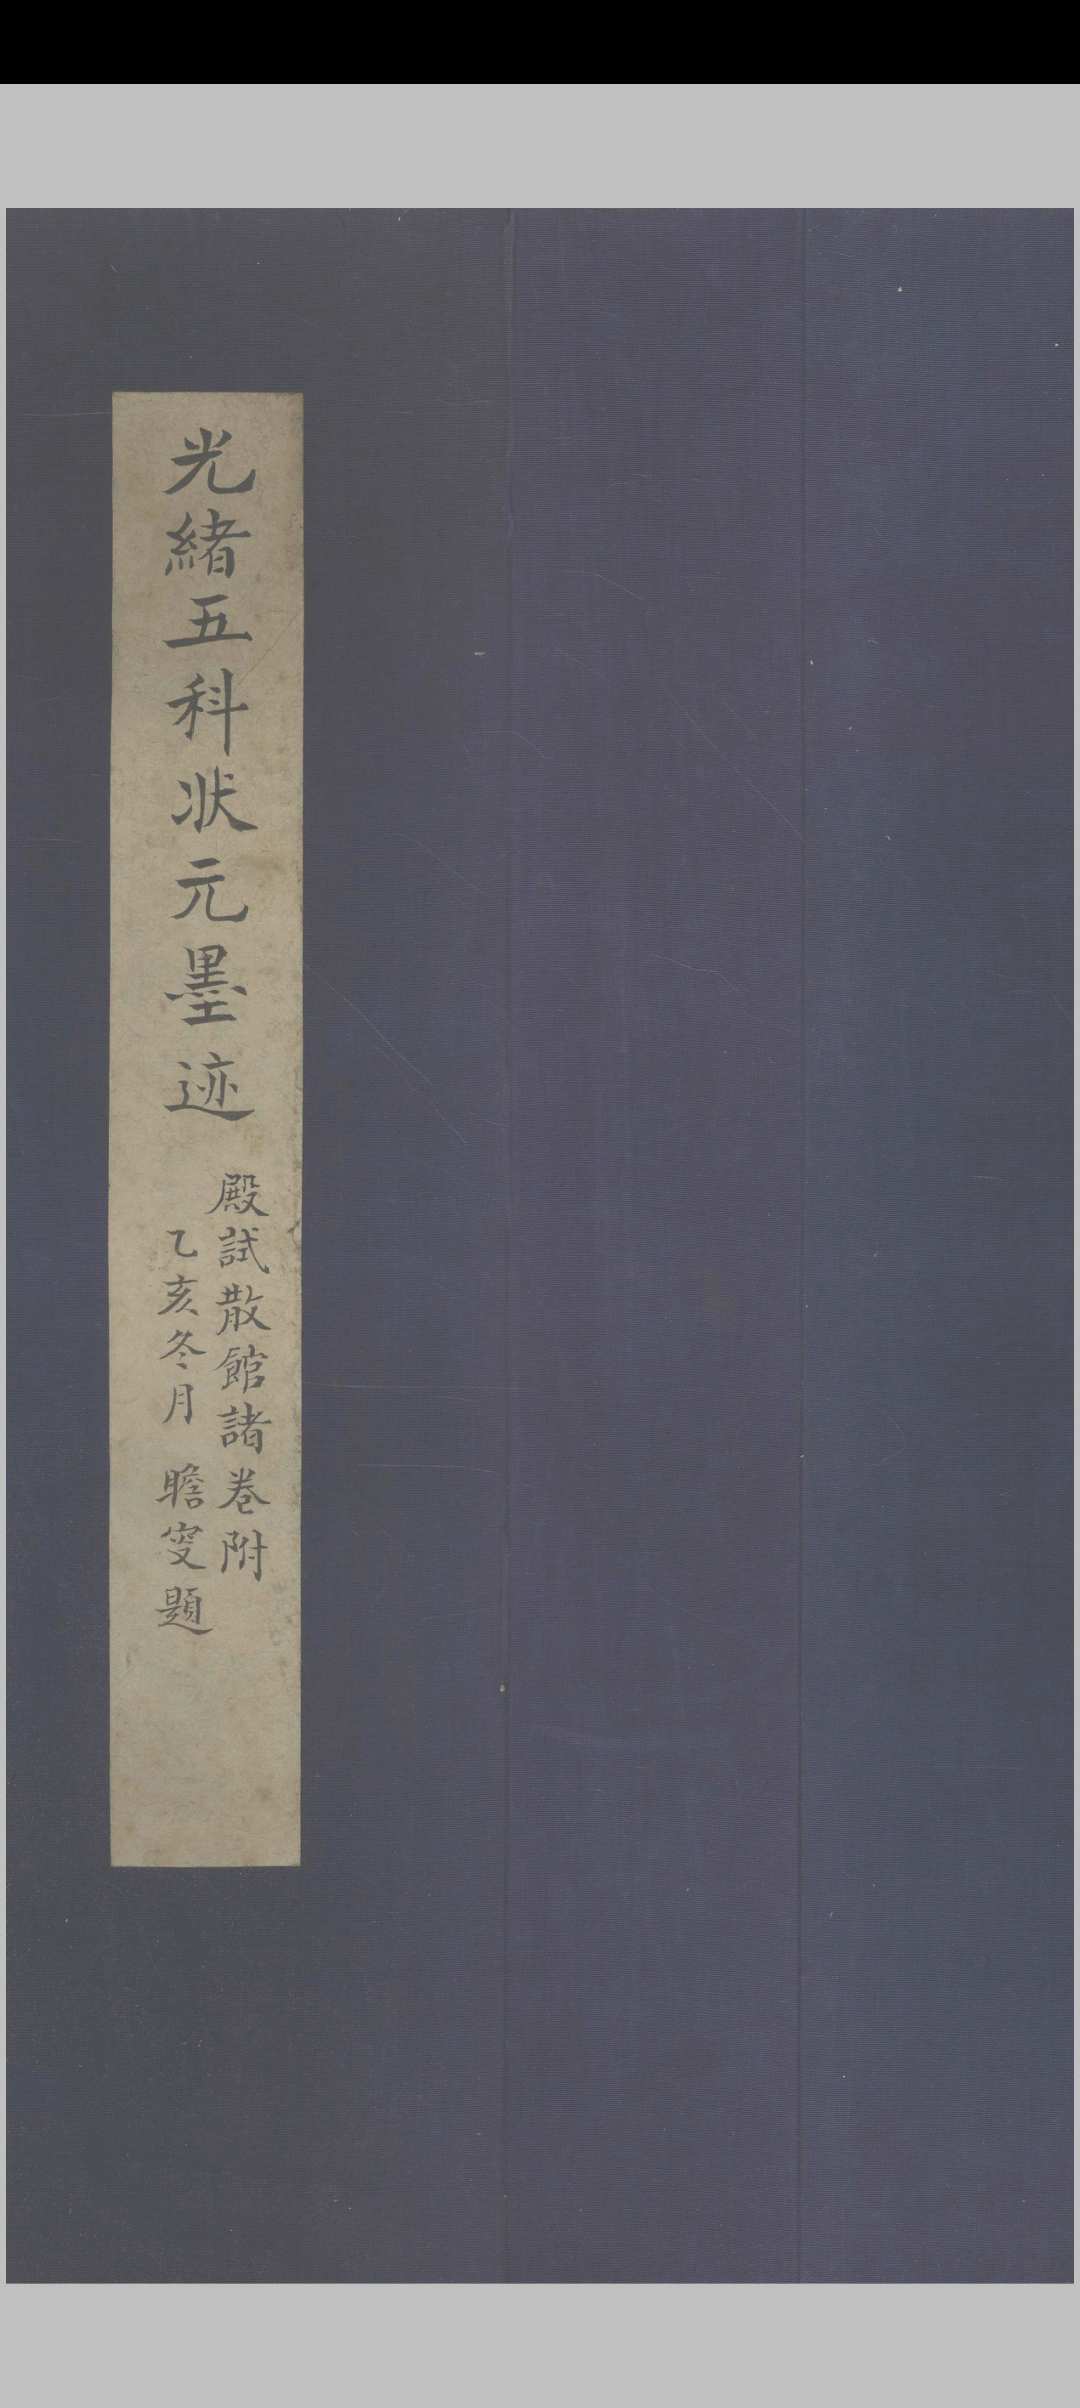 光緒五科状元墨迹
殿試散館諸卷附
乙亥冬月 瞻叟題